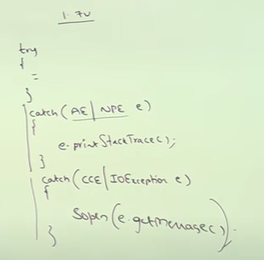 1.7v
try
{
=
}
catch(AE|NPE e)
{
e.printStackTrace();
}
catch(CCE|IOException e)
{
Sopln(e.getMessage());
}